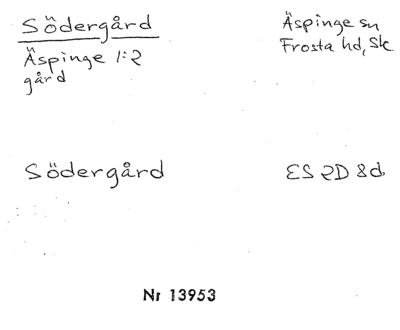 Södergård
Äspinge sn
Äspinge 1:2
Frosta hd, Sk
gård
Södergård
ES 2D 8d
Nr 13953